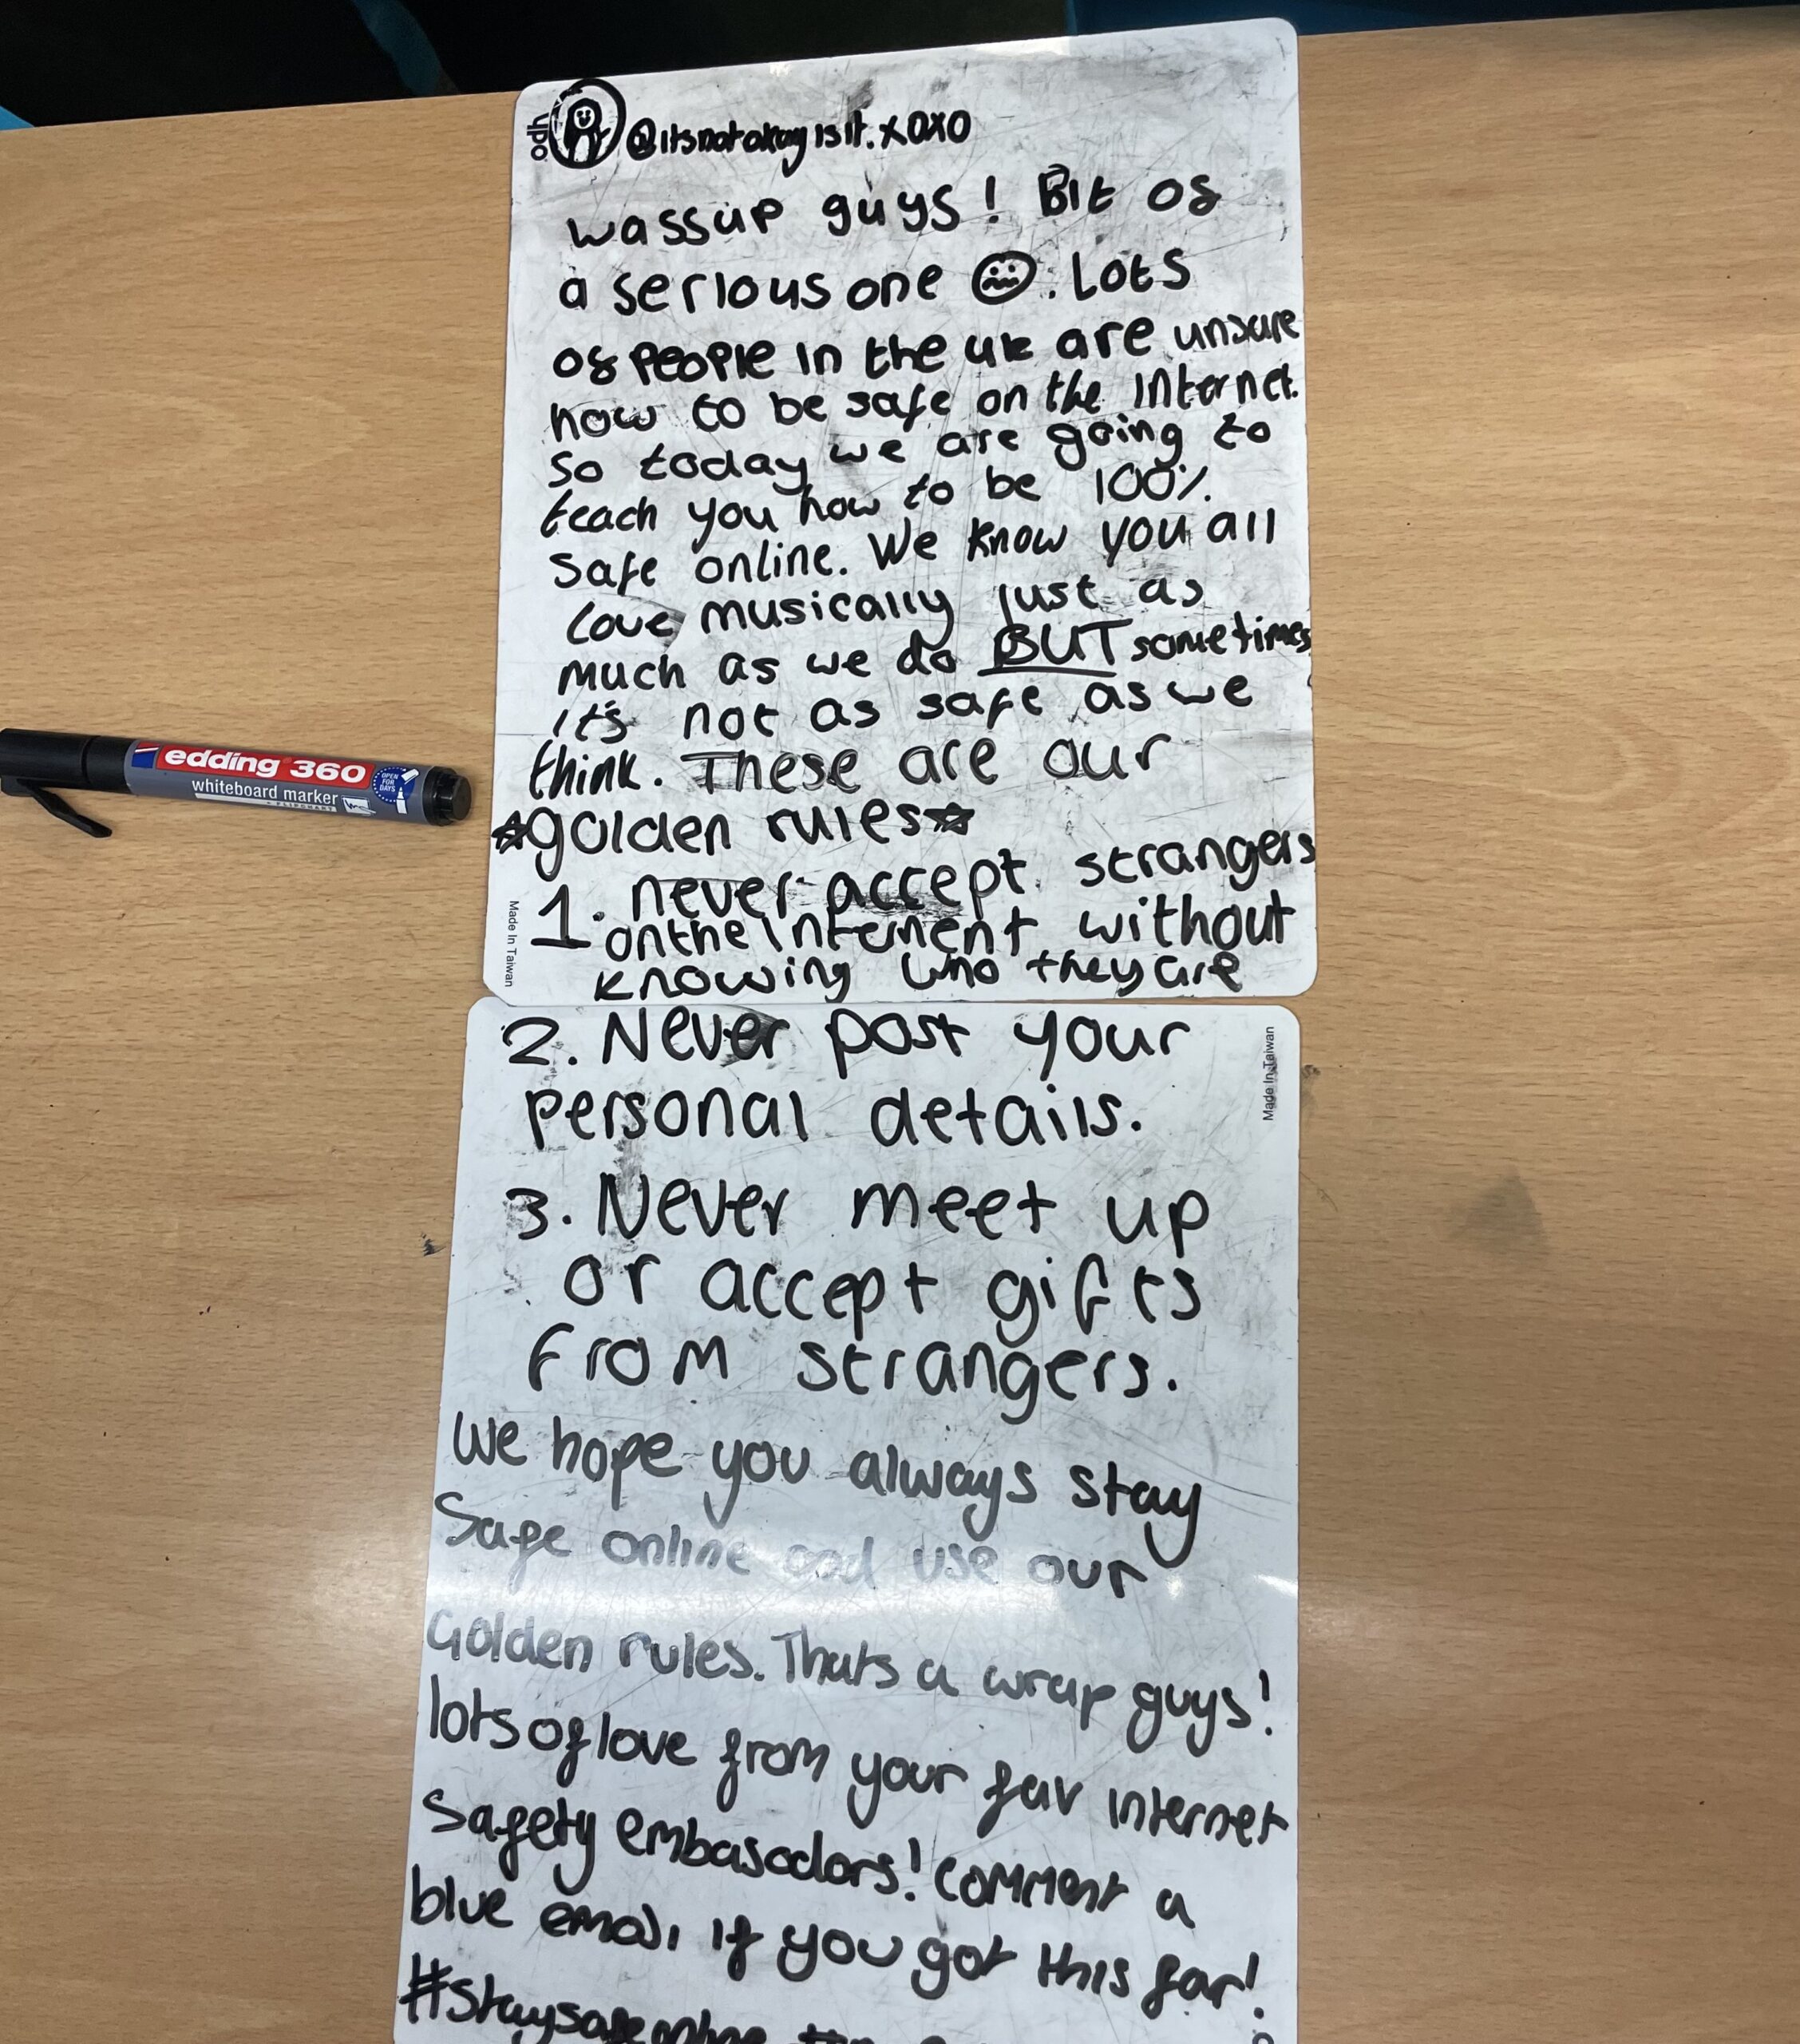 @itsnotokayisit.xoxo
wassup guys! Bit of
a serious one. Lots
of people in the uk are unsure
how to be safe on the internet.
so today we are going to
teach you how to be 100%
safe online. We know you all
love musically just as
much as we do BUT sometimes
it's not as safe as we
think. These are our
☆golden rules☆
1. never accept strangers
on the internent without
knowing who they are
Made In Taiwan
edding 360
whiteboard marker
OPEN FOR DAYS
2. Never post your
personal details.
Made In Taiwan
3. Never meet up
or accept gifts
from strangers.
We hope you always stay
Safe online and use our
Golden rules. Thats a wrap guys!
lots of love from your fav internet
Safety embasadors! comment a
blue emoji if you got this far!
#staysafeonline